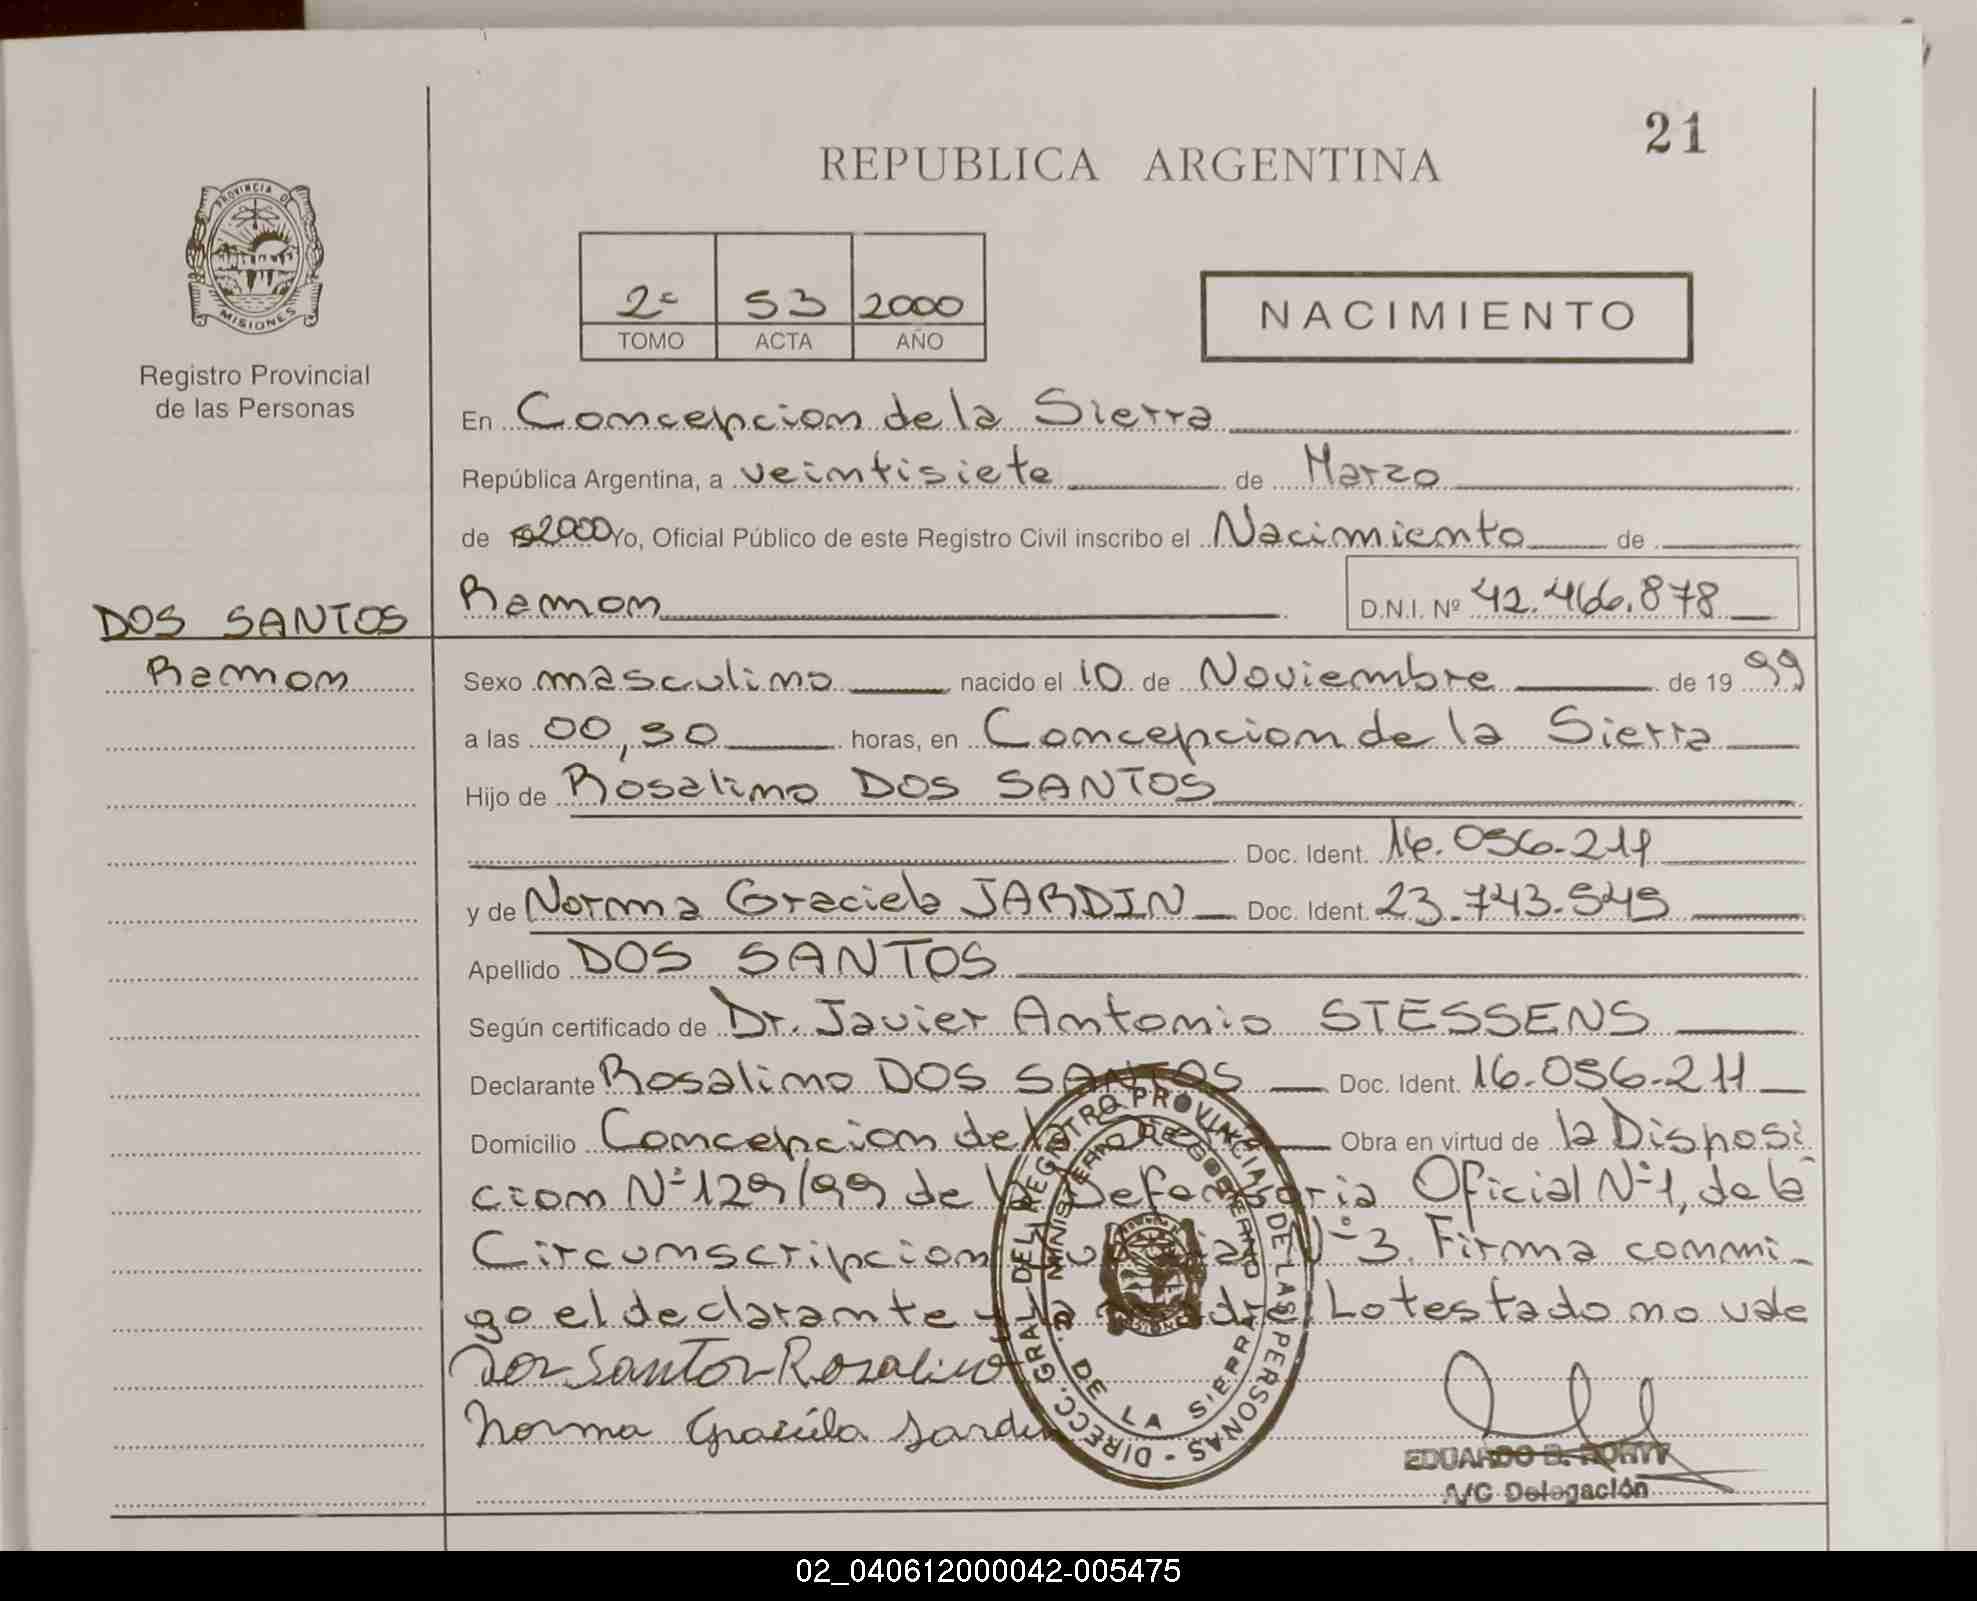 21
REPUBLICA ARGENTINA
PROVINCIA DE
MISIONES
Registro Provincial
de las Personas
2º 53 2000
TOMO ACTA AÑO
NACIMIENTO
En Concepcion de la Sierra
República Argentina, a veintisiete de Marzo
de 2000 Yo, Oficial Público de este Registro Civil inscribo el Nacimiento de
Ramon D.N.I. Nº 42.466.878
DOS SANTOS
Ramon
Sexo masculino nacido el 10 de Noviembre de 19 99
a las 00,30 horas, en Concepcion de la Sierra
Hijo de Rosalino DOS SANTOS
Doc. Ident. 16.056.211
y de Norma Graciela JARDIN Doc. Ident. 23.743.545
Apellido DOS SANTOS
Según certificado de Dr. Javier Antonio STESSENS
Declarante Rosalino DOS SANTOS Doc. Ident. 16.056.211
Domicilio Concepcion de la Obra en virtud de la Disposi
cion Nº 129/99 de la Defensoria Oficial Nº 1, de la
Circunscripcion Nº 3. Firma conmi-
go el declarante y la madre. Lo testado no vale
Dos Santos Rosalino
Norma Graciela Jardin
DIRECC. GRAL DEL REGISTRO PROVINCIAL DE LAS PERSONAS -
MINISTERIO DE GOBIERNO
DE LA SIERRA
MISIONES
EDUARDO B.
A/C Delegación
02_040612000042-005475